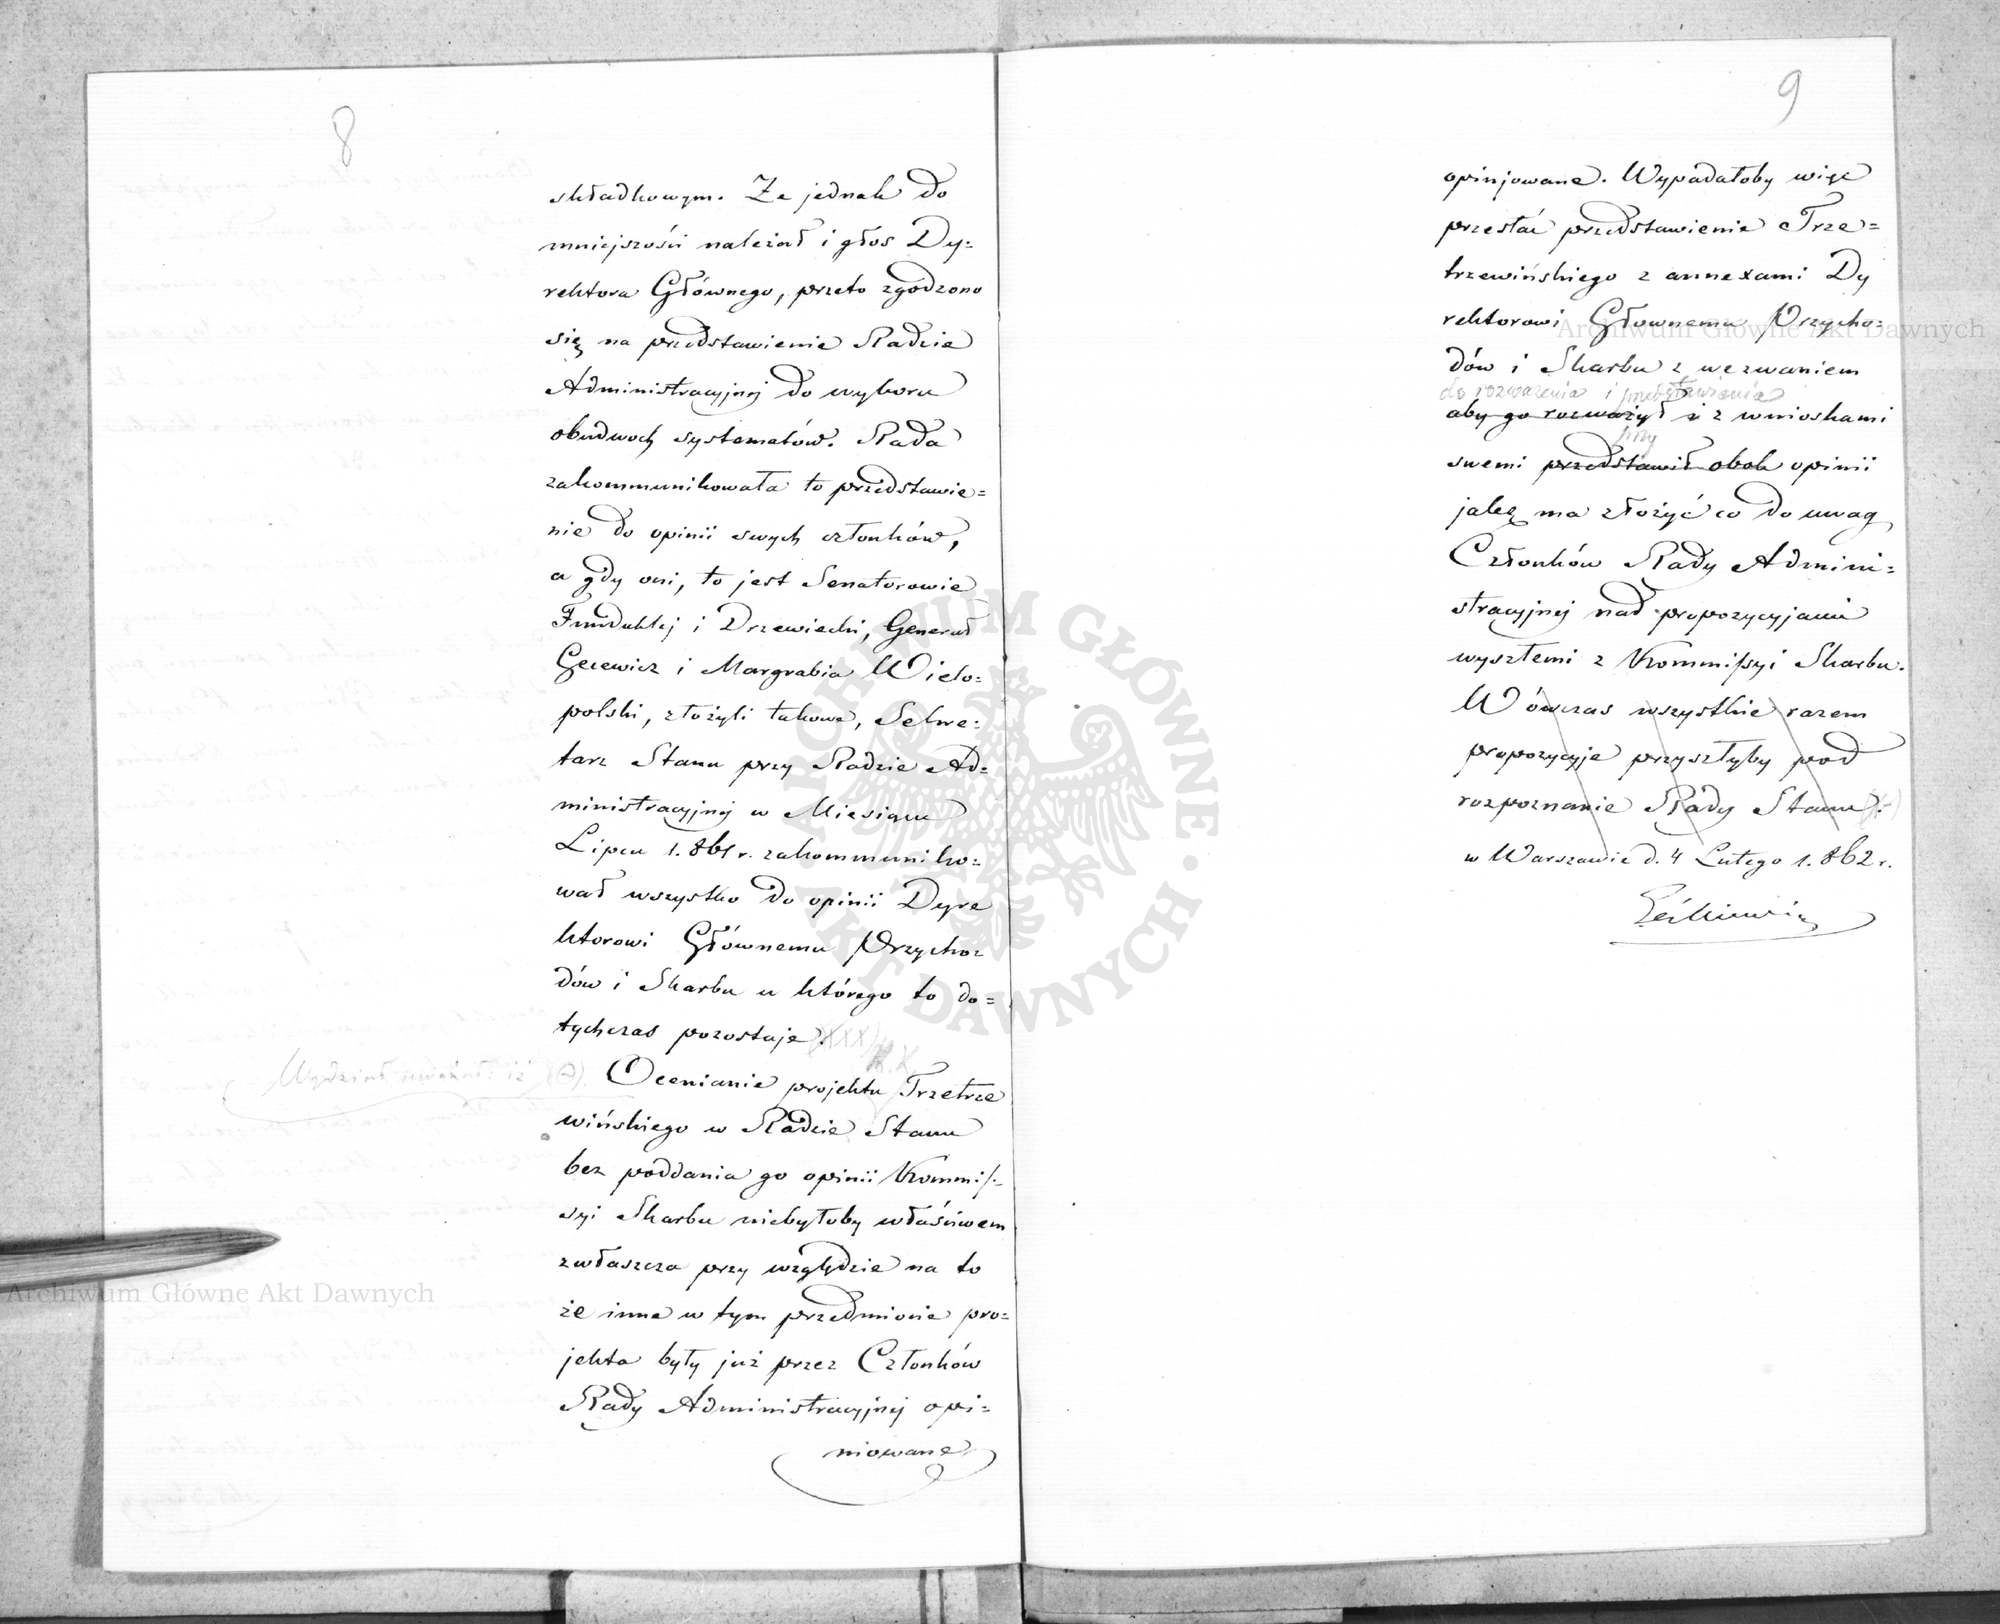 8
składkowym. Że jednak do
mniejszości należał i głos Dy=
rektora Głównego, przeto zgodzono
się na przedstawienie Radzie
Administracyjnej do wyboru
obudwoch systematów. Rada
zakommunikowała to przedstawie=
nie do opinii swych członków,
a gdy oni, to jest Senatorowie
Funduklej i Drzewiecki, Generał
Gecewicz i Margrabia Wielo=
polski, złożyli takowe, Sekre=
tarz Stanu przy Radzie Ad=
ministracyjnej w Miesiącu
Lipcu 1.861 r. zakommuniko=
wał wszystko do opinii Dyre
ktorowi Głównemu Przycho=
dów i Skarbu u którego to do=
tychczas pozostaje.
Wydział uważał iż
Ocenianie projektu Trzetrze
wińskiego w Radzie Stanu
bez poddania go opinii Kommis=
syi Skarbu niebyłoby właściwem
zwłaszcza przy względzie na to
że inne w tym przedmiocie pro=
jekta były już przez Członków
Rady Administracyjnej opi=
niowane
9
opinjowane. Wypadałoby więc
przesłać przedstawienie Trze=
trzewińskiego z annexami Dy
rektorowi Głownemu Przycho=
dów i Skarbu z wezwaniem
do rozważenia i przedstawienia
aby go rozważył i z wnioskami
przy
swemi przedstawił obok opinii
jaką ma złożyć co do uwag
Członków Rady Admini=
stracyjnej nad propozycyjami
wyszłemi z Kommissyi Skarbu.
Wówczas wszystkie razem
propozycyje przyszłyby pod
rozpoznanie Rady Stanu.
w Warszawie d. 4 Lutego 1.862 r.
Archiwum Główne Akt Dawnych
Archiwum Główne Akt Dawnych
ARCHIWUM GŁÓWNE · AKT DAWNYCH ·